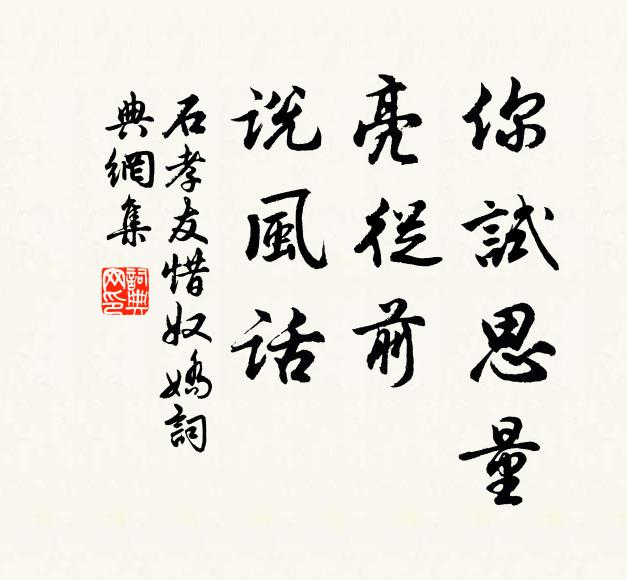 你試思量
亮從前
說風話
石孝友惜奴嬌詞
典網集
詞典网印